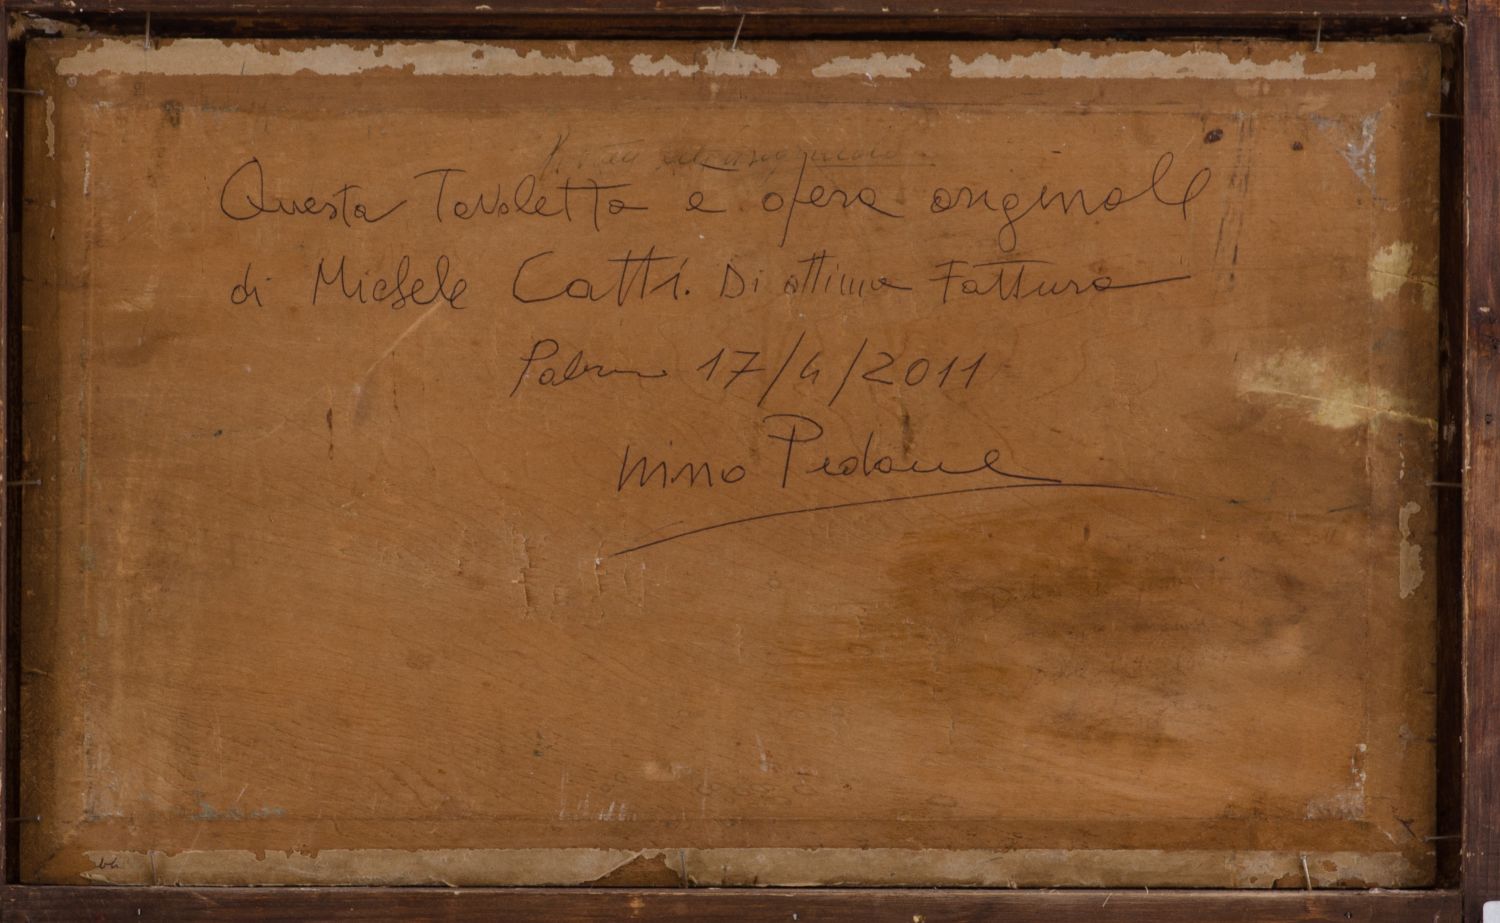 Questa Tavoletta è opera originale
di Michele Catti. Di ottima Fattura
Palermo 17/4/2011
Nino Pedone